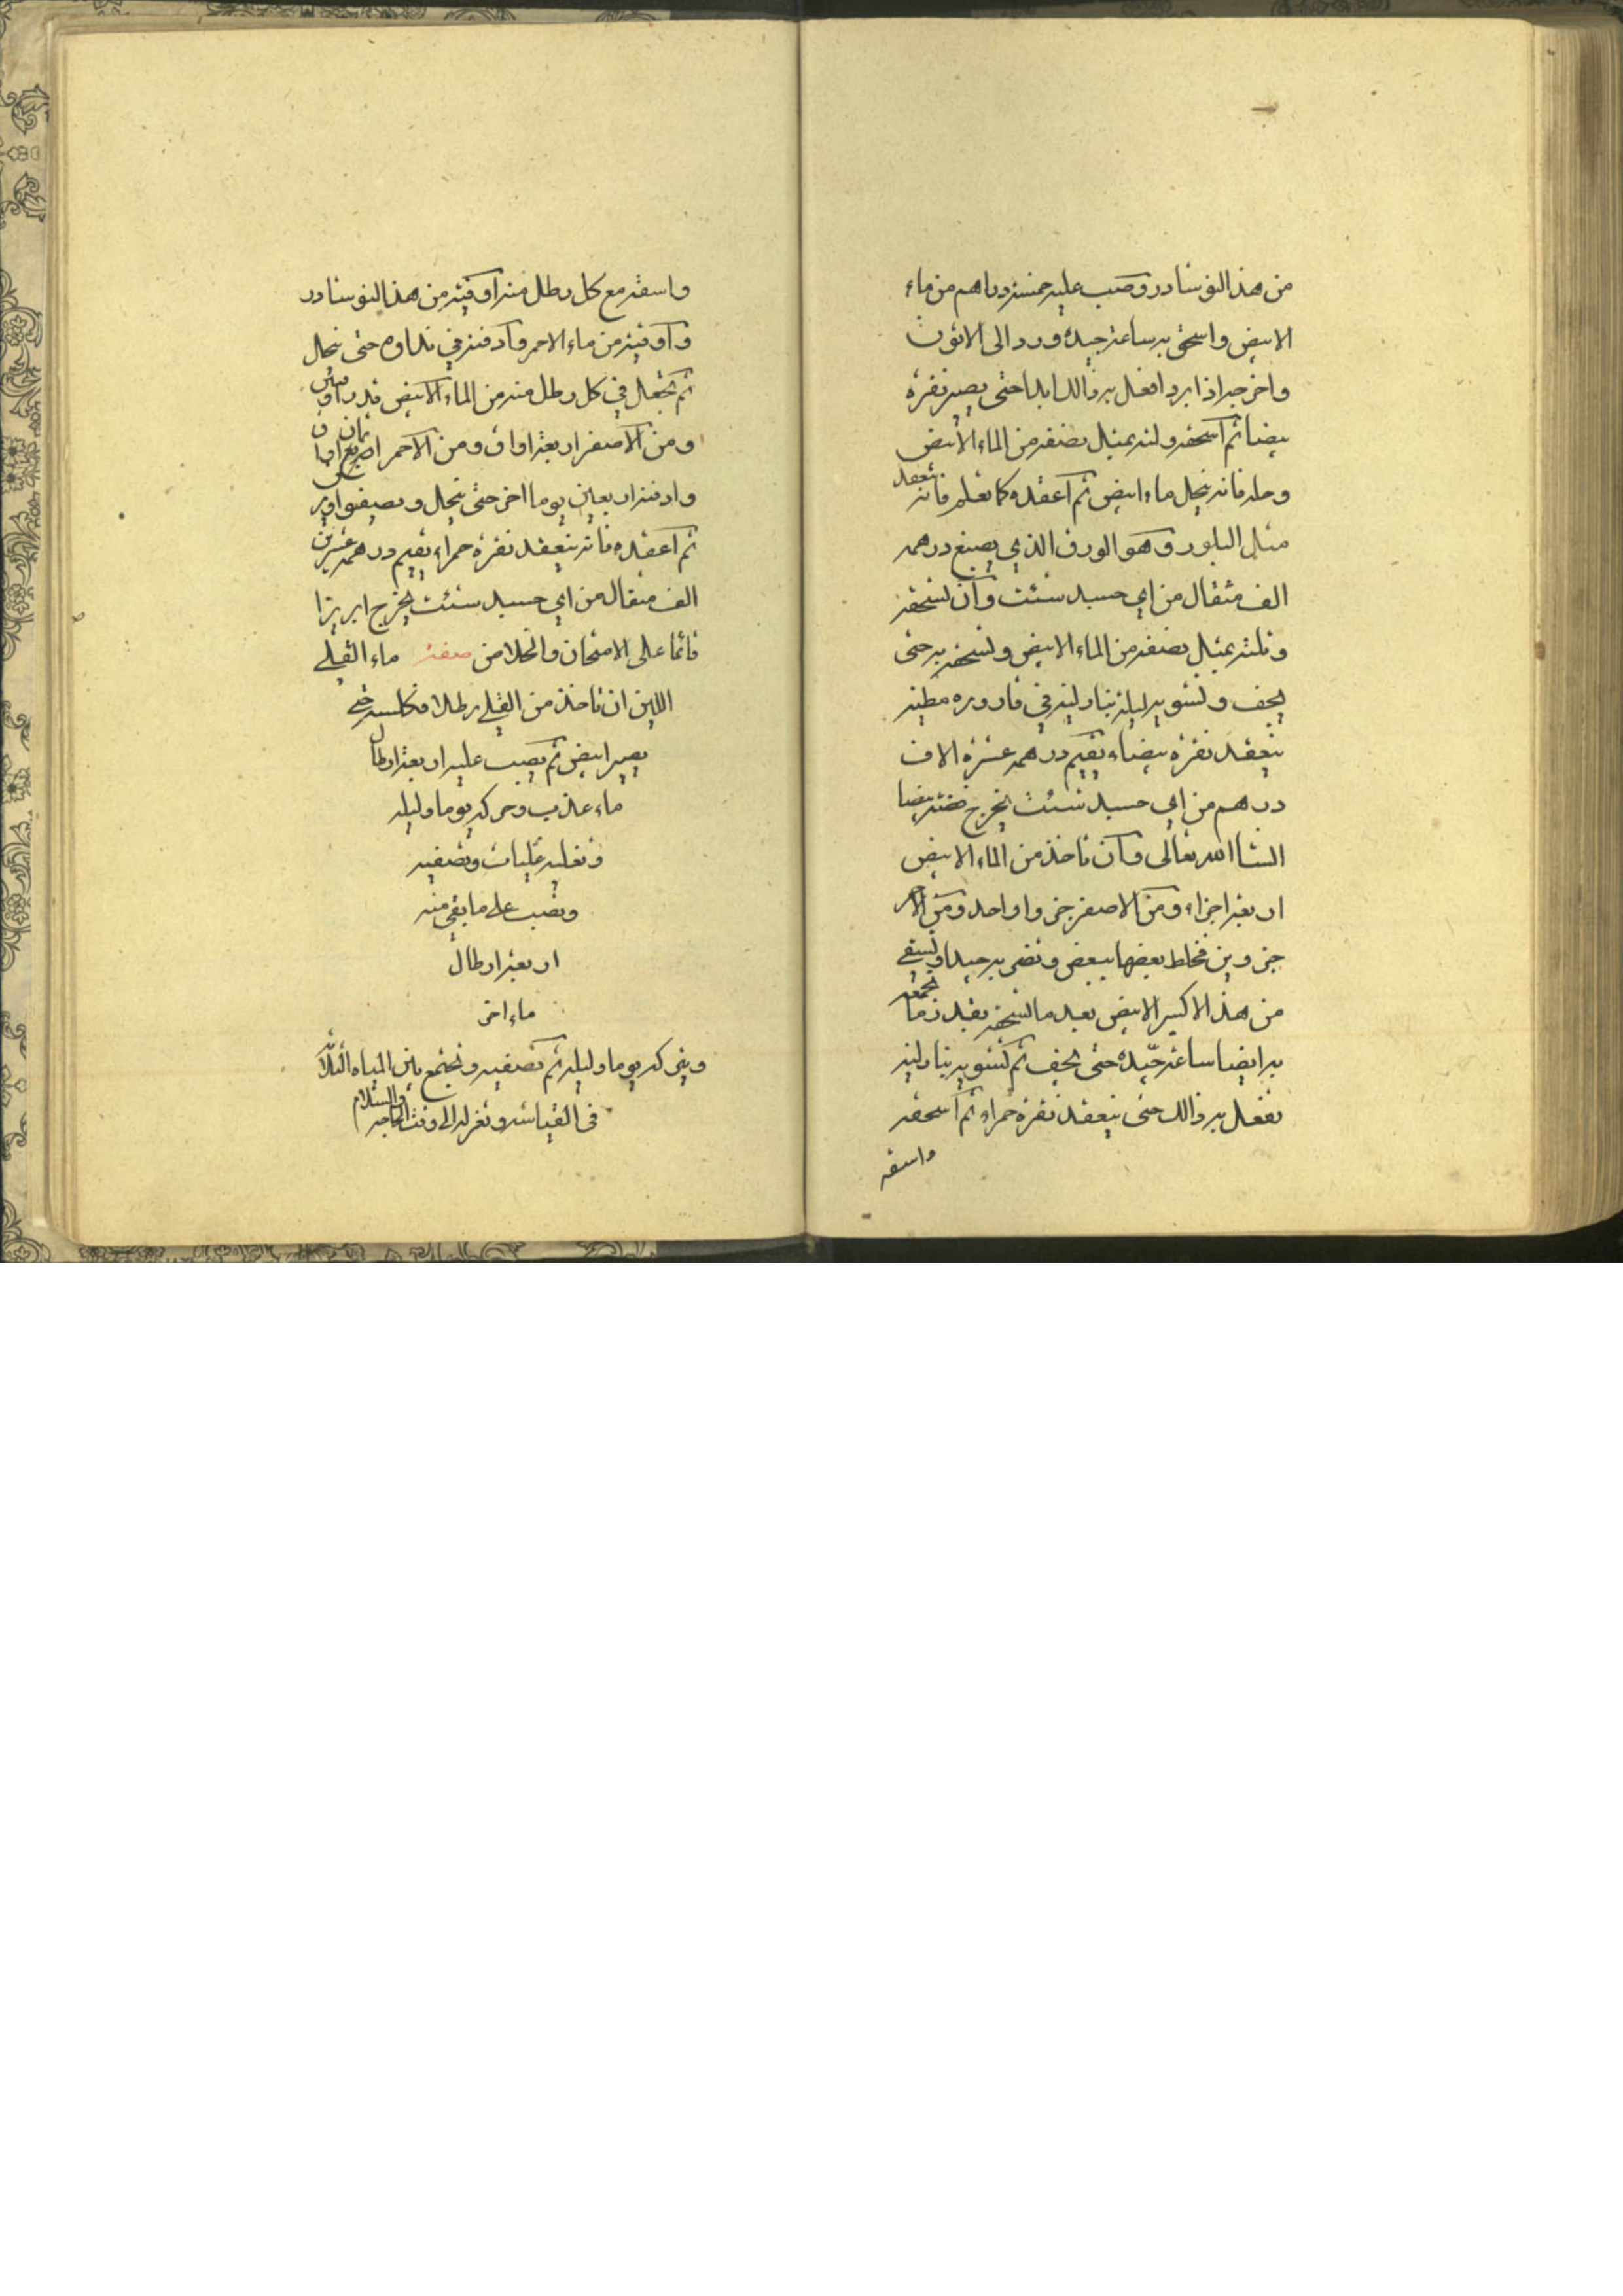 من هذا النوشادر وصب عليه خمسة دراهم من ماء
الابيض واسحق به ساعة جيده ورد الى الاتون
واخرجه اذا برد افعل به ذالك ابدا حتى يصير نقرة
بيضا ثم اسحقه ولته بمثل نصفه من الماء الابيض
وحله فانه ينحل ماء ابيض ثم اعقده كما تعلم فانه ينعقد
مثل البلور وهو الورق الذي يصبغ درهمه
الف مثقال من اي جسد شئت وان تسحقه
وتلته بمثل نصفه من الماء الابيض وتسحقه به حتى
يجف وتشويه ليلة بنار لينه في قاروره مطينه
ينعقد نقرة بيضاء يقيم درهمه عشرة الاف
درهم من اي جسد شئت يخرج فضة بيضا
انشا الله تعالى وان تاخذ من الماء الابيض
اربعة اجزاء ومن الاصفر جزوا واحد ومن الاحمر
جزوين فخلط بعضها ببعض وتضربه جيدا وتسقي
من هذا الاكسير الابيض بعد ما تسحقه بقدر ما تجمعه
به ايضا ساعة جيده حتى يجف ثم تشويه بنار لينه
تفعل به ذالك حتى ينعقد نقرة حمراء ثم اسحقه
واسقه
واسقه مع كل رطل منه اوقية من هذا النوشادر
واوقية من ماء الاحمر وادفنه في نداوه حتى ينحل
ثم تجعل في كل رطل منه من الماء الابيض قدر اوقيتين
ومن الاصفر اربعة اواق ومن الاحمر ثمان اواق
وادفنه اربعين يوما اخر حتى ينحل ويصيفوا
ثم اعقده فانه ينعقد نقرة حمراء يقيم درهمه عشرين
الف مثقال من اي جسد شئت يخرج ابريزا
قائما على الامتحان والخلاص صفة ماء القلي
اللين ان تاخذ من القلي رطلا فكلسه حتى
يصير ابيض ثم يصب عليه اربعة ارطال
ماء عذب وحركه يوما وليله
وتغليه غليات وتصفيه
وتصب على ما بقي منه
اربعة ارطال
ماء اخر
ويتركه يوما وليله ثم تصفيه وتجمع بين المياه الثلاث
في القياشه وتعزله الى وقت الحاجه والسلام